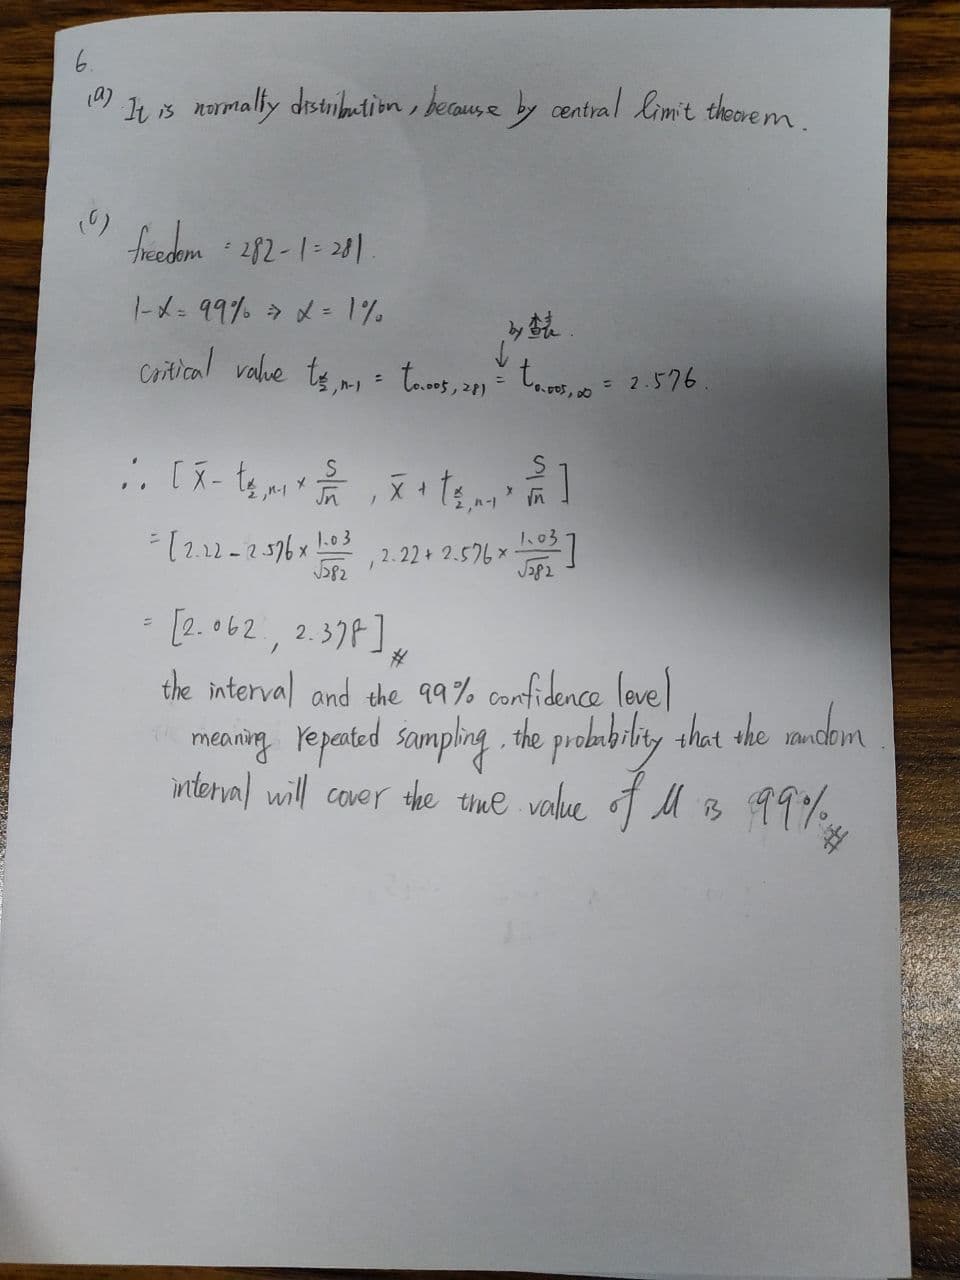 6.
(a) It is normalty distribution, because by central limit theorem.
(c)
freedom = 282 - 1 = 281.
1-α = 99% ⇒ α = 1%
by 查表.
↓
critical value t_{α/2, n-1} = t_{0.005, 281} = t_{0.005, ∞} = 2.576.
∴ [x̄ - t_{α/2, n-1} × S/√n , x̄ + t_{α/2, n-1} × S/√n]
= [2.22 - 2.576 × 1.03/√282 , 2.22 + 2.576 × 1.03/√282]
= [2.062, 2.378] #
the interval and the 99% confidence level
meaning repeated sampling, the probability that the random
interval will cover the true value of M is 99% #